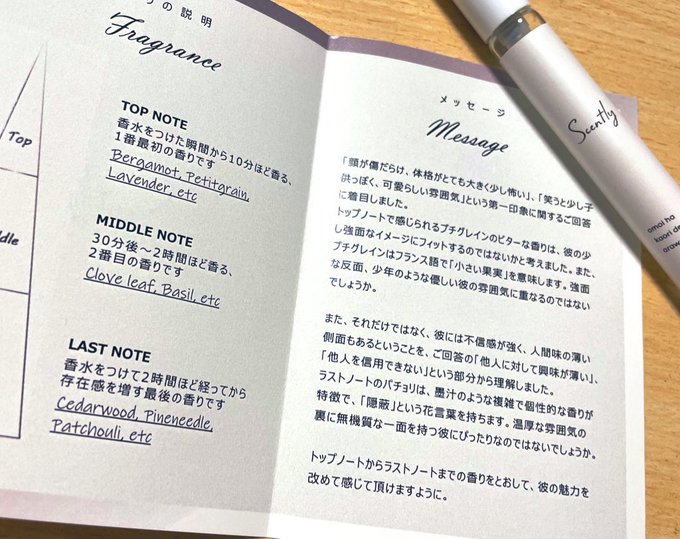 の説明
Fragrance
Top
TOP NOTE
香水をつけた瞬間から10分ほど香る、
1番最初の香りです
Bergamot, Petitgrain,
Lavender, etc
MIDDLE NOTE
30分後～2時間ほど香る、
2番目の香りです
Clove leaf, Basil, etc
LAST NOTE
香水をつけて2時間ほど経ってから
存在感を増す最後の香りです
Cedarwood, Pineneedle,
Patchouli, etc
メッセージ
Message
「顔が傷だらけ、体格がとても大きく少し怖い」、「笑うと少し子
供っぽく、可愛らしい雰囲気」という第一印象に関するご回答
に着目しました。
トップノートで感じられるプチグレインのビターな香りは、彼の少
し強面なイメージにフィットするのではないかと考えました。また、
プチグレインはフランス語で「小さい果実」を意味します。強面
な反面、少年のような優しい彼の雰囲気に重なるのではない
でしょうか。
また、それだけではなく、彼には不信感が強く、人間味の薄い
側面もあるということを、ご回答の「他人に対して興味が薄い」、
「他人を信用できない」という部分から理解しました。
ラストノートのパチョリは、墨汁のような複雑で個性的な香りが
特徴で、「隠蔽」という花言葉を持ちます。温厚な雰囲気の
裏に無機質な一面を持つ彼にぴったりなのではないでしょうか。
トップノートからラストノートまでの香りをとおして、彼の魅力を
改めて感じて頂けますように。
Scently
omoi ha
kaori de